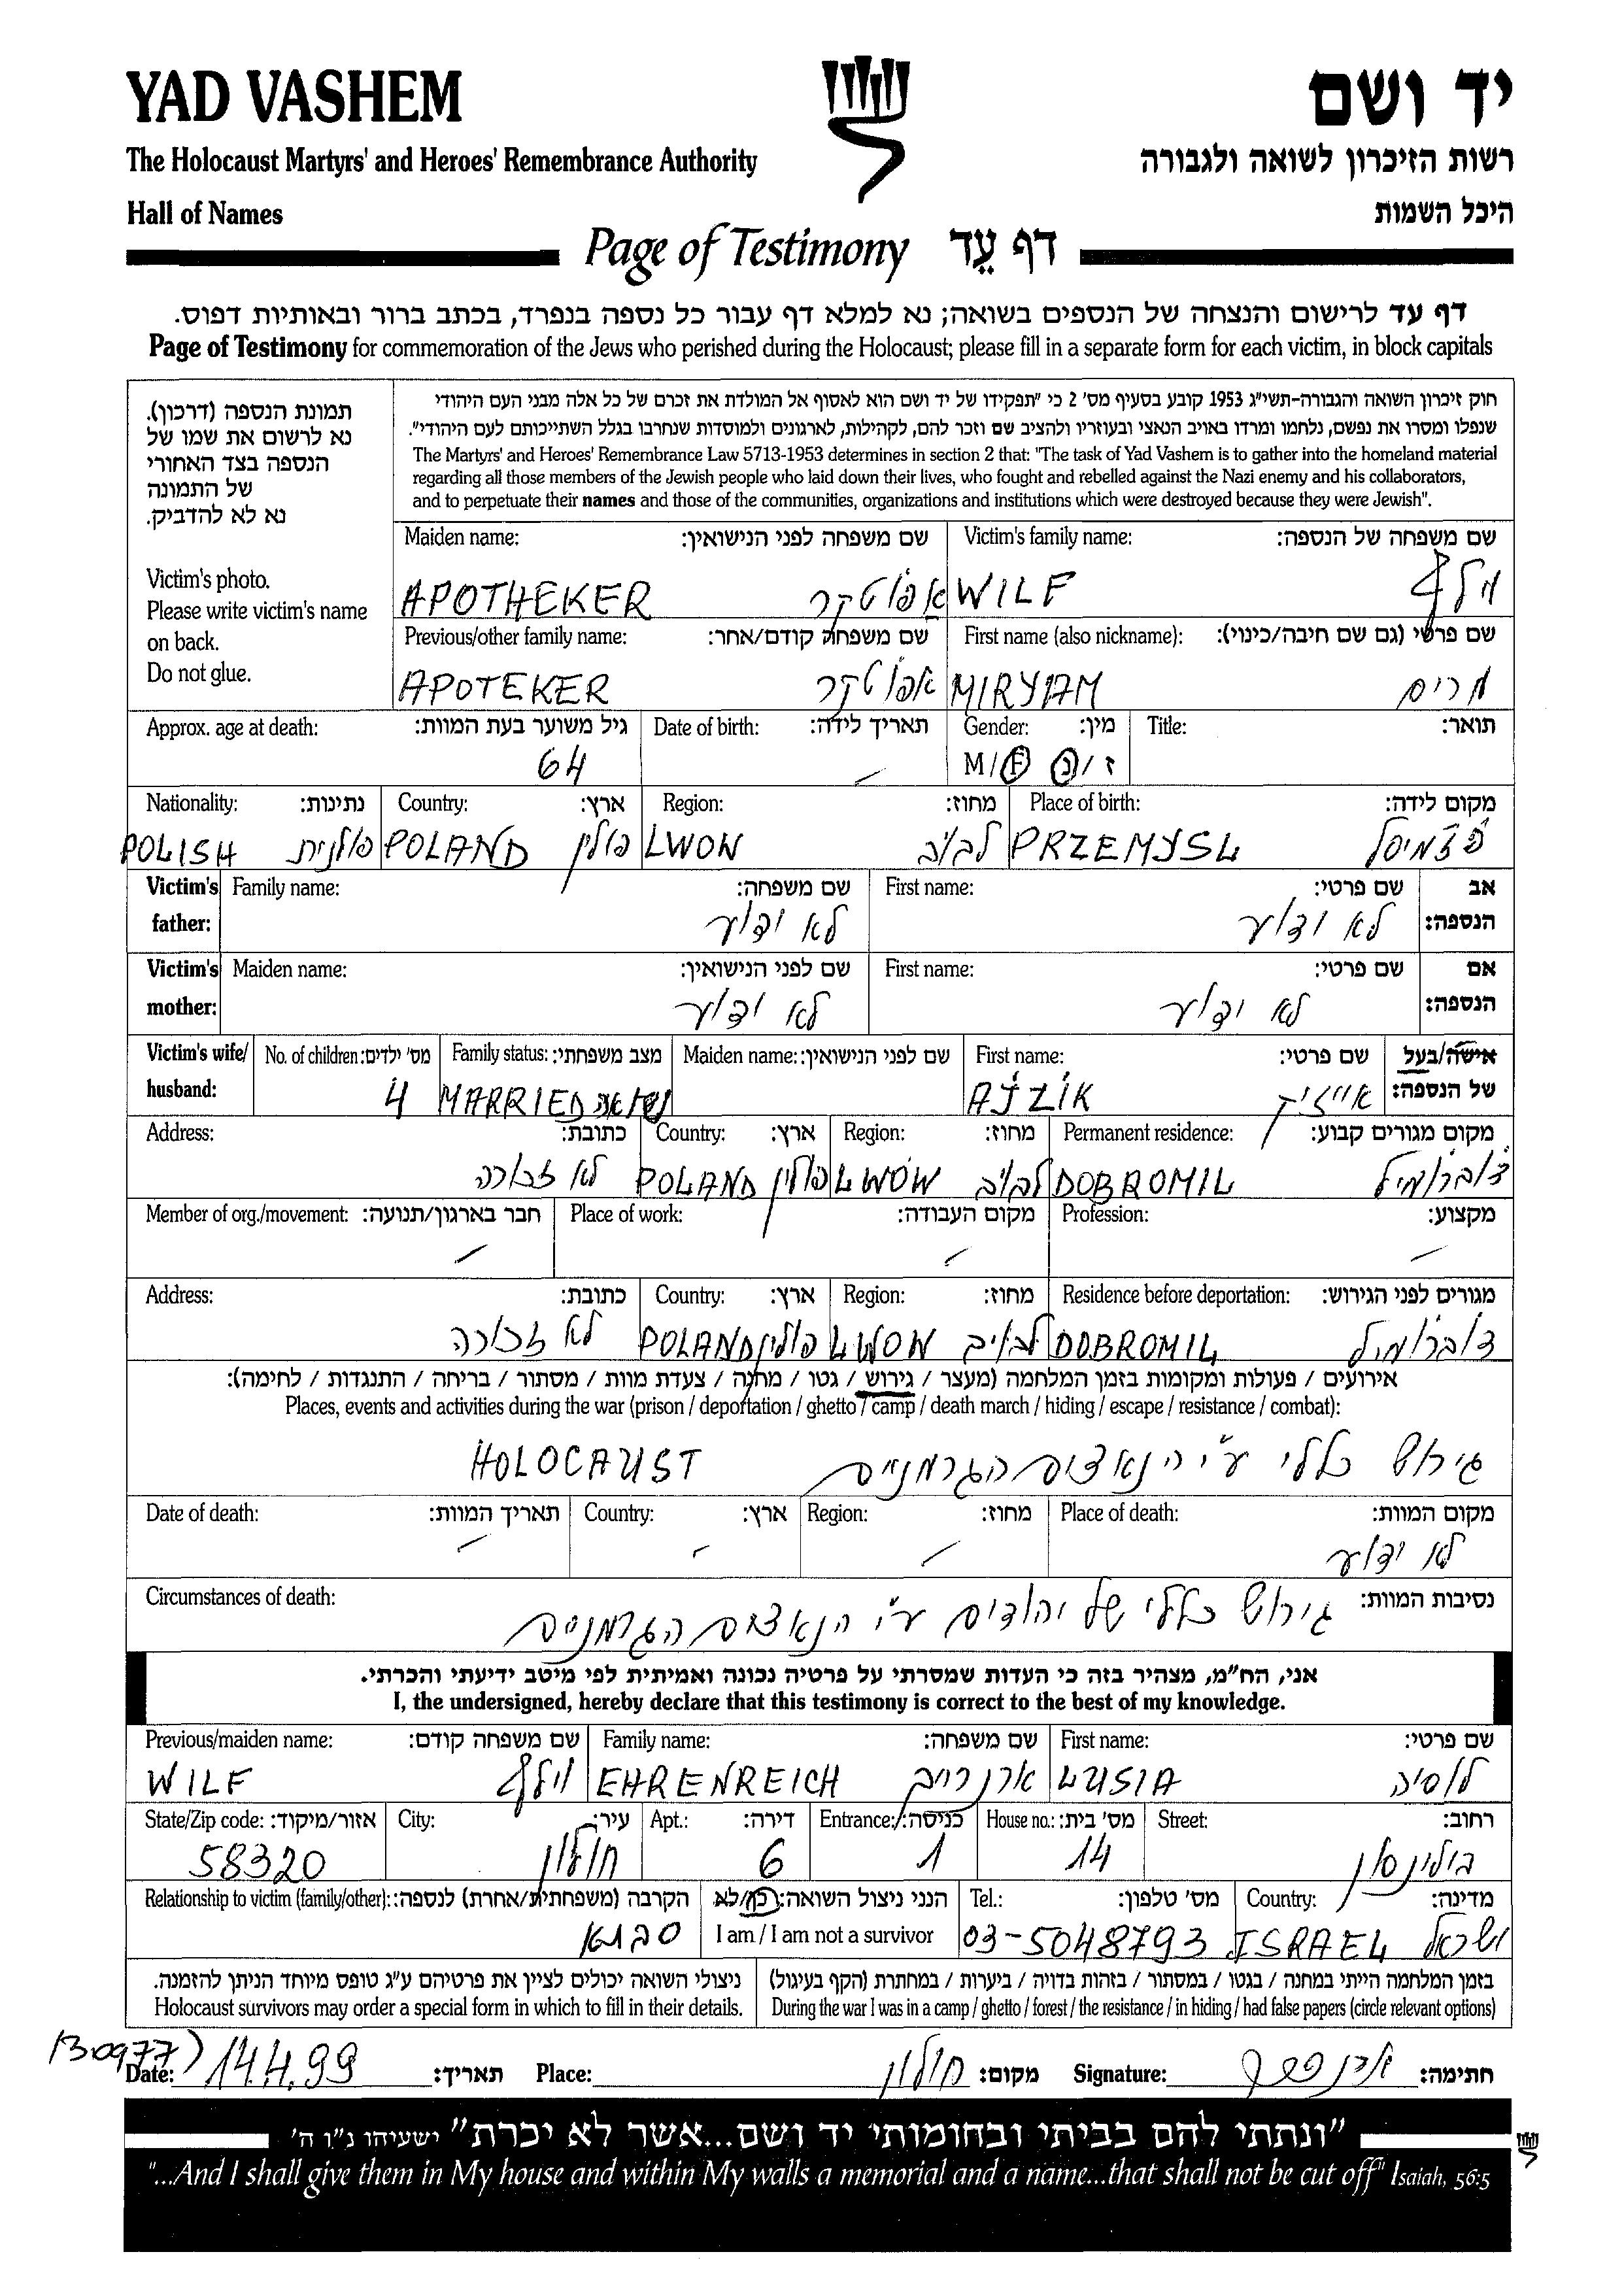 YAD VASHEM
יד ושם
The Holocaust Martyrs' and Heroes' Remembrance Authority
רשות הזיכרון לשואה ולגבורה
Hall of Names
היכל השמות
Page of Testimony דף עֵד
דף עד לרישום והנצחה של הנספים בשואה; נא למלא דף עבור כל נספה בנפרד, בכתב ברור ובאותיות דפוס.
Page of Testimony for commemoration of the Jews who perished during the Holocaust; please fill in a separate form for each victim, in block capitals
תמונת הנספה (דרכון).
נא לרשום את שמו של
הנספה בצד האחורי
של התמונה
נא לא להדביק.
Victim's photo.
Please write victim's name
on back.
Do not glue.
חוק זיכרון השואה והגבורה-תשי"ג 1953 קובע בסעיף מס' 2 כי "תפקידו של יד ושם הוא לאסוף אל המולדת את זכרם של כל אלה מבני העם היהודי
שנפלו ומסרו את נפשם, נלחמו ומרדו באויב הנאצי ובעוזריו ולהציב שם וזכר להם, לקהילות, לארגונים ולמוסדות שנחרבו בגלל השתייכותם לעם היהודי".
The Martyrs' and Heroes' Remembrance Law 5713-1953 determines in section 2 that: "The task of Yad Vashem is to gather into the homeland material
regarding all those members of the Jewish people who laid down their lives, who fought and rebelled against the Nazi enemy and his collaborators,
and to perpetuate their names and those of the communities, organizations and institutions which were destroyed because they were Jewish".
Maiden name: שם משפחה לפני הנישואין: Victim's family name: שם משפחה של הנספה:
APOTHEKER אפוטקר WILF וילף
Previous/other family name: שם משפחה קודם/אחר: First name (also nickname): שם פרטי (גם שם חיבה/כינוי):
APOTEKER אפוטקר MIRYAM מרים
Approx. age at death: גיל משוער בעת המוות: Date of birth: תאריך לידה: Gender: מין: Title: תואר:
64 M/F ז/נ
Nationality: נתינות: Country: ארץ: Region: מחוז: Place of birth: מקום לידה:
POLISH פולנית POLAND פולין LWOW לבוב PRZEMYSL פשמיסל
Victim's father: Family name: שם משפחה: First name: שם פרטי: אב הנספה:
לא ידוע לא ידוע
Victim's mother: Maiden name: שם לפני הנישואין: First name: שם פרטי: אם הנספה:
לא ידוע לא ידוע
Victim's wife/ husband: No. of children: מס' ילדים: Family status: מצב משפחתי: Maiden name: שם לפני הנישואין: First name: שם פרטי: אישה/בעל של הנספה:
4 MARRIED נשואה AJZIK אייזיק
Address: כתובת: Country: ארץ: Region: מחוז: Permanent residence: מקום מגורים קבוע:
לא זכורה POLAND פולין LWOW לבוב DOBROMIL דוברומיל
Member of org./movement: חבר בארגון/תנועה: Place of work: מקום העבודה: Profession: מקצוע:
Address: כתובת: Country: ארץ: Region: מחוז: Residence before deportation: מגורים לפני הגירוש:
לא זכורה POLAND פולין LWOW לבוב DOBROMIL דוברומיל
אירועים / פעולות ומקומות בזמן המלחמה (מעצר / גירוש / גטו / מחנה / צעדת מוות / מסתור / בריחה / התנגדות / לחימה):
Places, events and activities during the war (prison / deportation / ghetto / camp / death march / hiding / escape / resistance / combat):
HOLOCAUST גירוש כללי ע"י הנאצים הגרמניים
Date of death: תאריך המוות: Country: ארץ: Region: מחוז: Place of death: מקום המוות:
לא ידוע
Circumstances of death: נסיבות המוות:
גירוש כללי של יהודים ע"י הנאצים הגרמניים
אני, הח"מ, מצהיר בזה כי העדות שמסרתי על פרטיה נכונה ואמיתית לפי מיטב ידיעתי והכרתי.
I, the undersigned, hereby declare that this testimony is correct to the best of my knowledge.
Previous/maiden name: שם משפחה קודם: Family name: שם משפחה: First name: שם פרטי:
WILF וילף EHRENREICH ארנרייך LUSIA לוסיה
State/Zip code: אזור/מיקוד: City: עיר: Apt.: דירה: Entrance: כניסה: House no.: מס' בית: Street: רחוב:
58320 חולון 6 1 14
Relationship to victim (family/other): הקרבה (משפחתית/אחרת) לנספה: הנני ניצול השואה: כן/לא Tel.: מס' טלפון: Country: מדינה:
סבתא I am / I am not a survivor 03-5048793 ISRAEL ישראל
ניצולי השואה יכולים לציין את פרטיהם ע"ג טופס מיוחד הניתן להזמנה.
Holocaust survivors may order a special form in which to fill in their details.
בזמן המלחמה הייתי במחנה / בגטו / במסתור / בזהות בדויה / ביערות / במחתרת (הקף בעיגול)
During the war I was in a camp / ghetto / forest / the resistance / in hiding / had false papers (circle relevant options)
130977)
Date: 14.4.99 תאריך: Place: חולון מקום: Signature: חתימה:
"ונתתי להם בביתי ובחומותי יד ושם...אשר לא יכרת" ישעיהו נ"ו ה'
"...And I shall give them in My house and within My walls a memorial and a name...that shall not be cut off" Isaiah, 56:5